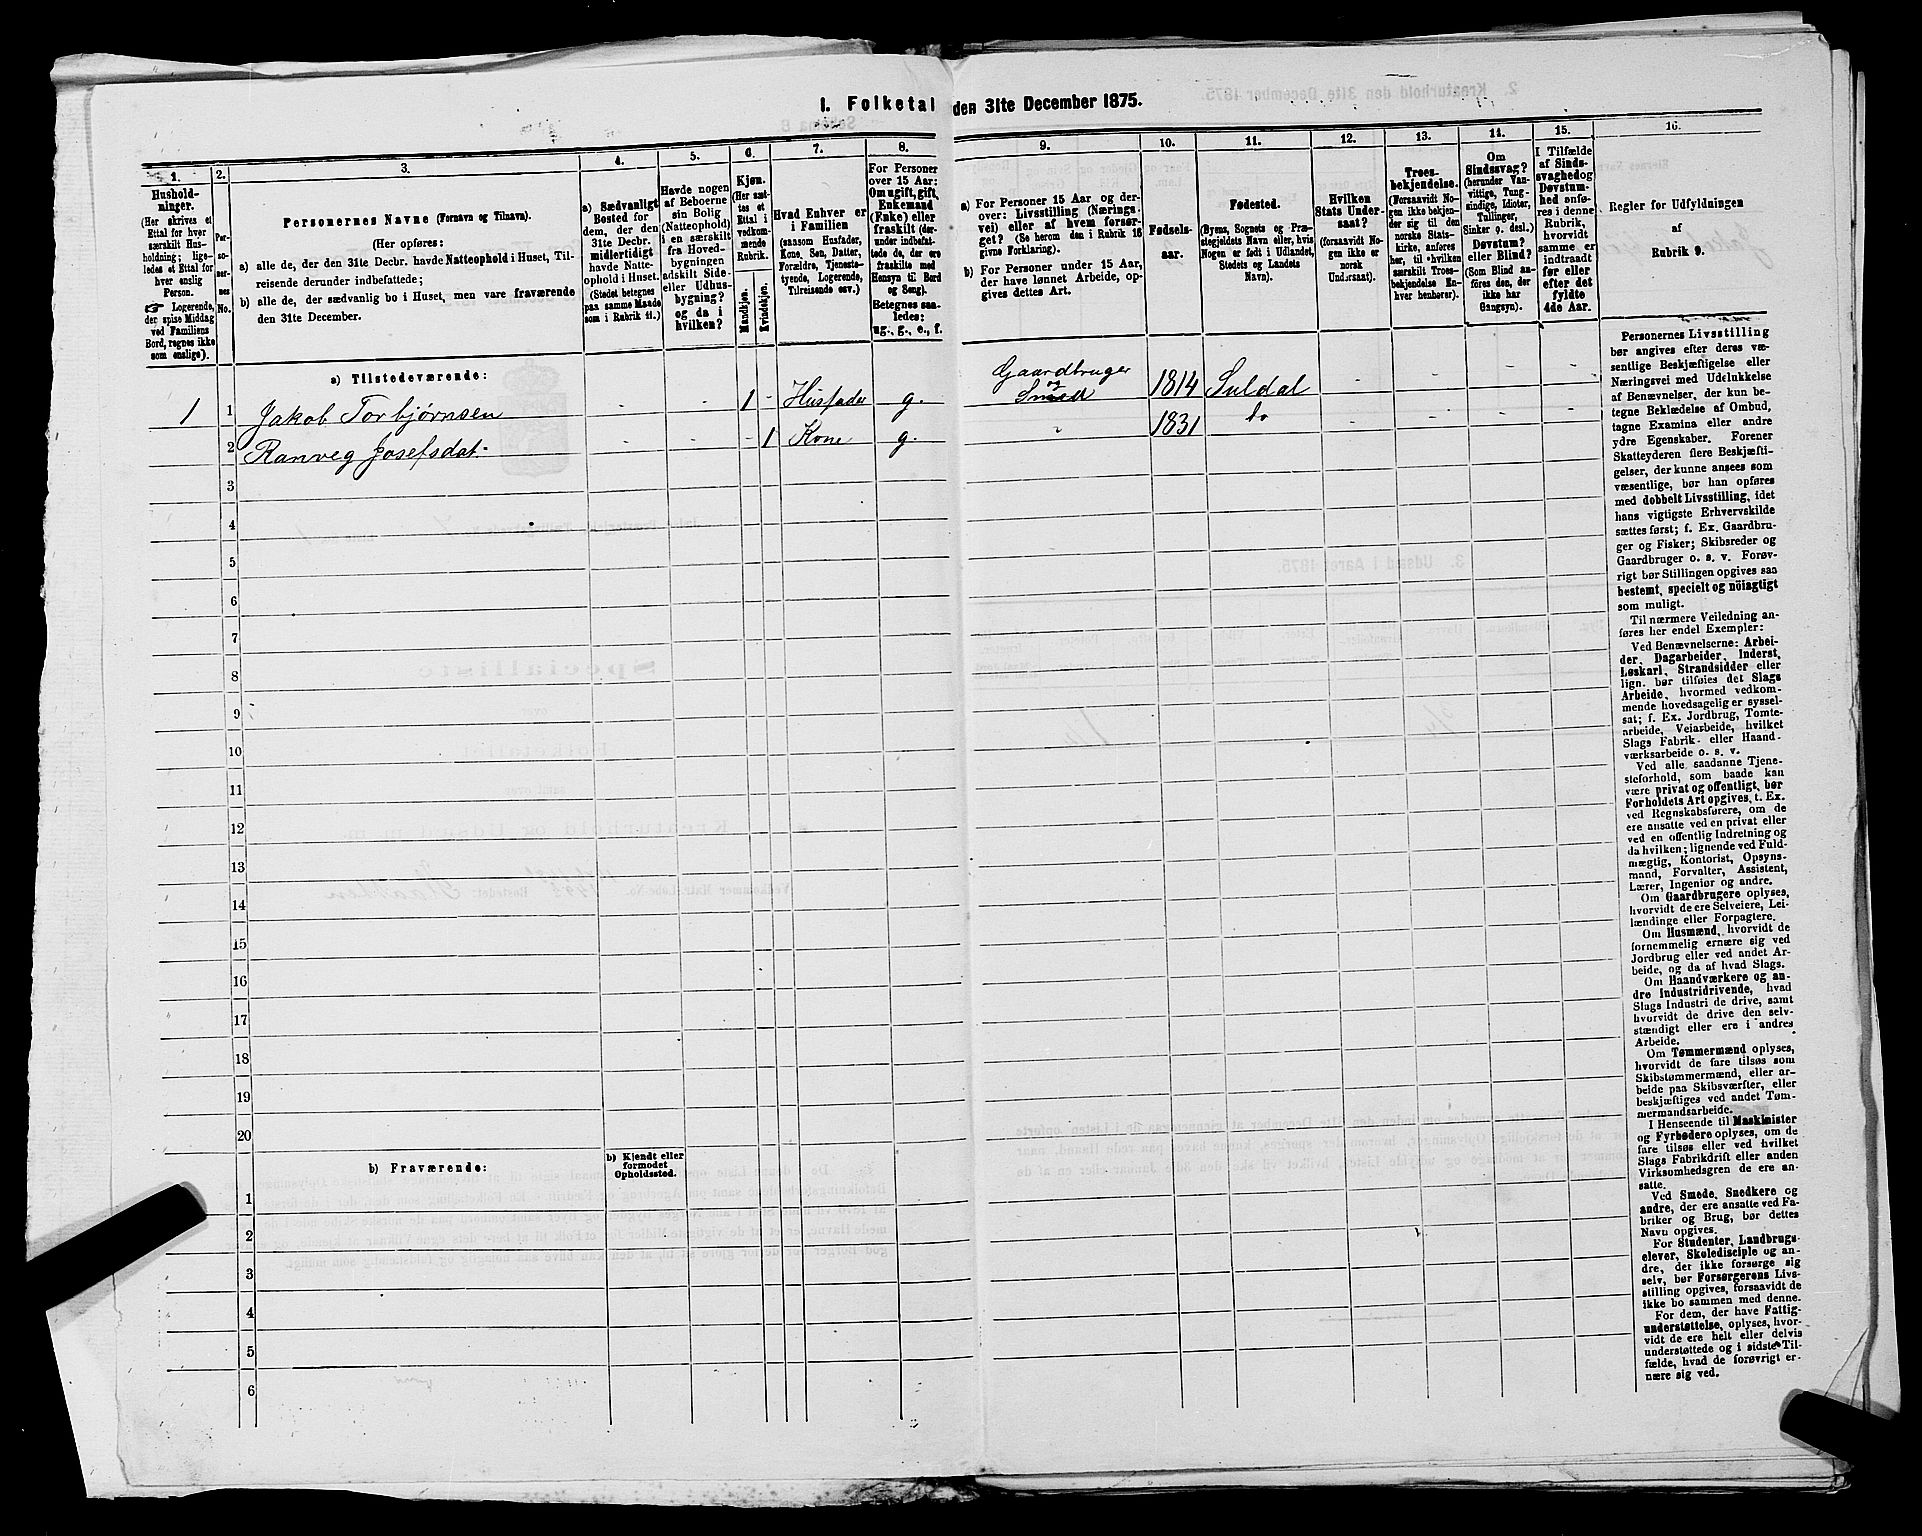 1. Folketal den 31te December 1875.
1. 2. 3. 4. 5. 6. 7. 8. 9. 10. 11. 12. 13. 14. 15. 16.
Hushold-
ninger.
(Her skrives et
Ettal for hver
særskilt Hus-
holdning; lige-
ledes et Ettal for
hver enslig
Person.
☞ Logerende,
der spise Middag
ved Familiens
Bord, regnes ikke
som enslige).
Per-
so-
ner-
nes
No.
Personernes Navne (Fornavn og Tilnavn).
(Her opføres:
a) alle de, der den 31te Decbr. havde Natteophold i Huset, Til-
reisende derunder indbefattede;
b) alle de, der sædvanlig bo i Huset, men vare fraværende
den 31te December.
a) Sædvanligt
Bosted for
dem, der den
31te Decbr.
midlertidigt
havde Natte-
ophold i Huset.
(Stedet betegnes
paa samme Maade
som i Rubrik 11.)
Havde nogen
af Beboerne
sin Bolig
(Natteophold)
i en særskilt
fra Hoved-
bygningen
adskilt Side-
eller Udhus-
bygning?
og da i
hvilken?
Kjøn.
(Her sæt-
tes et
Ettal i
vedkom-
mende
Rubrik.
Mandkjøn.
Kvindekjøn.
Hvad Enhver er
i Familien
(saasom Husfader,
Kone, Søn, Datter,
Forældre, Tjeneste-
tyende, Logerende,
Tilreisende osv.)
For Personer
over 15 Aar:
Om ugift, gift,
Enkemand
(Enke) eller
fraskilt (der-
under indbefat-
tede de, der ere
fraskilte med
Hensyn til Bord
og Seng).
Betegnes saa-
ledes:
ug., g., e., f.
a) For Personer 15 Aar og der-
over: Livsstilling (Nærings-
vei) eller af hvem forsør-
get? (Se herom den i Rubrik 16
givne Forklaring).
b) For Personer under 15 Aar,
der have lønnet Arbeide, op-
gives dettes Art.
Fødsels-
aar.
Fødested.
(Byens, Sognets og Præ-
stegjeldets Navn eller, hvis
Nogen er født i Udlandet,
Stedets og Landets
Navn).
Hvilken
Stats Under-
saat?
(forsaavidt No-
gen ikke er
norsk
Undersaat).
Troes-
bekjendelse.
(Forsaavidt No-
gen ikke bekjen-
der sig til den
norske Stats-
kirke, anføres
her, til hvilken
særskilt Troes-
bekjendelse En-
hver henhører).
Om
Sindssvag?
(herunder Van-
vittige, Tung-
sindige, Idioter,
Tullinger,
Sinker o. desl.)
Døvstum?
eller Blind?
(Som Blind an-
føres den, der
ikke har
Gangsyn).
I Tilfælde
af Sinds-
svaghed og
Døvstum-
hed anfø-
res i denne
Rubrik,
hvorvidt
samme er
indtraadt
før eller
efter det
fyldte
4de Aar.
Regler for Udfyldningen
af
Rubrik 9.
a) Tilstedeværende:
1 1 Jakob Torbjørnsen - - 1 - Husfader g. Gaardbruger og Smed 1814 Suldal - - - -
2 Ranveg Josefsdat. - - - 1 Kone g. " 1831 do - - - -
3
4
5
6
7
8
9
10
11
12
13
14
15
16
17
18
19
20
b) Fraværende:
b) Kjendt eller
formodet
Opholdssted.
1
2
3
4
5
6
Personernes Livsstilling
bør angives efter deres væ-
sentlige Beskjæftigelse eller
Næringsvei med Udelukkelse
af Benævnelser, der kun be-
tegne Beklædelse af Ombud,
tagne Examina eller andre
ydre Egenskaber. Forener
Skatteyderen flere Beskjæfti-
gelser, der kunne ansees som
væsentlige, bør han opføres
med dobbelt Livsstilling, idet
hans vigtigste Erhvervskilde
sættes først; f. Ex. Gaardbru-
ger og Fisker; Skibsreder og
Gaardbruger o. s. v. Forøv-
rigt bør Stillingen opgives saa
bestemt, specielt og nöiagtigt
som muligt.
Til nærmere Veiledning an-
føres her endel Exempler:
Ved Benævnelserne: Arbei-
der, Dagarbeider, Inderst,
Løskarl, Strandsidder eller
lign. bør tilføies det Slags
Arbeide, hvormed vedkom-
mende hovedsagelig er syssel-
sat; f. Ex. Jordbrug, Tomte-
arbeide, Veiarbeide, hvilket
Slags Fabrik- eller Haand-
værksarbeide o. s. v.
Ved alle saadanne Tjene-
steforhold, som baade kan
være privat og offentligt, bør
Forholdets Art opgives, t. Ex.
ved Regnskabsførere, om de
ere ansatte ved en privat eller
ved en offentlig Indretning og
da hvilken; lignende ved Fuld-
mægtig, Kontorist, Opsyns-
mand, Forvalter, Assistent,
Lærer, Ingeniør og andre.
Om Gaardbrugere oplyses,
hvorvidt de ere Selveiere, Lei-
lændinge eller Forpagtere.
Om Husmænd, hvorvidt de
fornemmelig ernære sig ved
Jordbrug eller ved andet Ar-
beide, og da af hvad Slags.
Om Haandværkere og an-
dre Industridrivende, hvad
Slags Industri de drive, samt
hvorvidt de drive den selv-
stændigt eller ere i andres
Arbeide.
Om Tømmermænd oplyses,
hvorvidt de fare tilsøs som
Skibstømmermænd, eller ar-
beide paa Skibsværfter, eller
beskjæftiges ved andet Tøm-
mermandsarbeide.
I Henseende til Maskinister
og Fyrbødere oplyses, om de
fare tilsøs eller ved hvilket
Slags Fabrikdrift eller anden
Virksomhedsgren de ere an-
satte.
Ved Smede, Snedkere og
andre, der ere ansatte ved Fa-
briker og Brug, bør dettes
Navn opgives.
For Studenter, Landbrugs-
elever, Skoledisciple og an-
dre, der ikke forsørge sig
selv, bør Forsørgerens Livs-
stilling opgives, forsaavidt de
ikke bo sammen med denne.
For dem, der have Fattig-
understøttelse, oplyses, hvor-
vidt de ere helt eller delvis
understøttede og i sidste Til-
fælde, hvad de forøvrigt er-
nære sig ved.